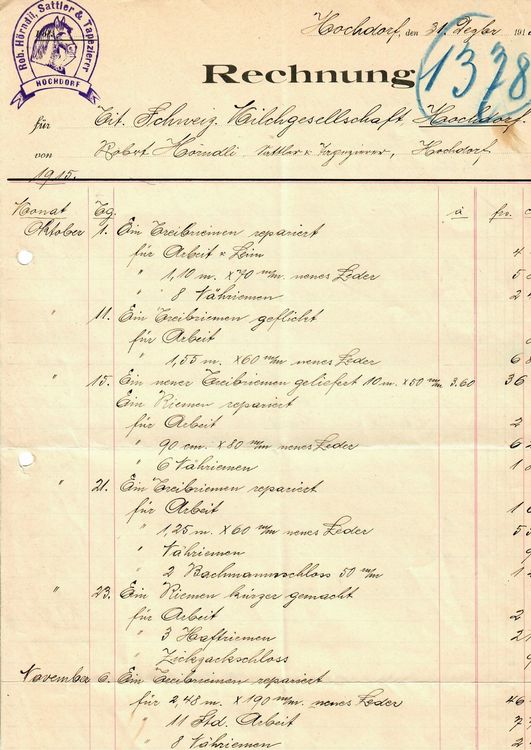 Rob. Hörndli, Sattler & Tapezierer
HOCHDORF
Hochdorf, den 31. Dezber 191
Rechnung
1378
für Tit. Schweiz. Milchgesellschaft Hochdorf.
von Robert Hörndli Sattler & Tapezierer, Hochdorf
1915.
Monat Tg. à frs. c
Oktober 1. Ein Treibriemen repariert
für Arbeit & Leim 4
" 1,10 m. x 70 m/m neues Leder 5
" 8 Nähriemen 2
" 11. Ein Treibriemen geflickt
für Arbeit
" 1,55 m. x 60 m/m neues Leder 6 8
" 15. Ein neuer Treibriemen geliefert 10 m. x 50 m/m 3.60 36
Ein Riemen repariert
für Arbeit 2
" 90 cm. x 80 m/m neues Leder 6
" 6 Nähriemen 1
" 21. Ein Treibriemen repariert
für Arbeit 1
" 1,25 m. x 60 m/m neues Leder 5
" Nähriemen
" 2 Bachmannschloss 50 m/m 1
" 23. Ein Riemen kürzer gemacht
für Arbeit 2
" 3 Haftriemen 2
" Zickzackschloss
November 6. Ein Treibriemen repariert
für 2,48 m. x 190 m/m. neues Leder 46
" 11 Std. Arbeit 7
" 8 Nähriemen 2